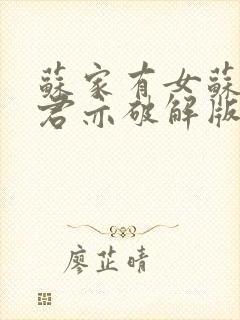 蘇家有女蘇
君亦破解版
廖芷晴